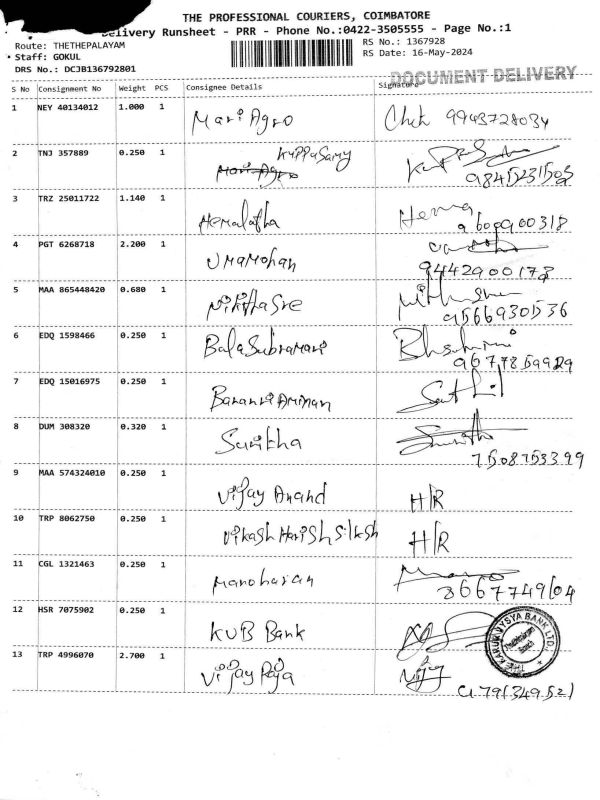 THE PROFESSIONAL COURIERS, COIMBATORE
Delivery Runsheet - PRR - Phone No.:0422-3505555 - Page No.:1
Route: THETHEPALAYAM
RS No.: 1367928
Staff: GOKUL
RS Date: 16-May-2024
DRS No.: DCJB136792801
DOCUMENT DELIVERY
S No Consignment No Weight PCS Consignee Details Signature
1 NEY 40134012 1.000 1 Mari Agro 9943728034
2 TNJ 357889 0.250 1 Kuppusamy
Mari Agro
3 TRZ 25011722 1.140 1 Hemalatha Hema
9600900318
4 PGT 6268718 2.200 1 Umamohan
9442900173
5 MAA 865448420 0.680 1 Nikitha Sre
9566930536
6 EDQ 1598466 0.250 1 Bala Subramani
7 EDQ 15016975 0.250 1
8 DUM 308320 0.320 1
9 MAA 574324010 0.250 1 Vijay Anand H/R
10 TRP 8062750 0.250 1 Vikash Harish Silksh H/R
11 CGL 1321463 0.250 1 Manoharan
12 HSR 7075902 0.250 1 KUB Bank
THE KARUR VYSYA BANK LTD.
Thethipalayam
Branch
13 TRP 4996070 2.700 1 Vijay Raja Vijay